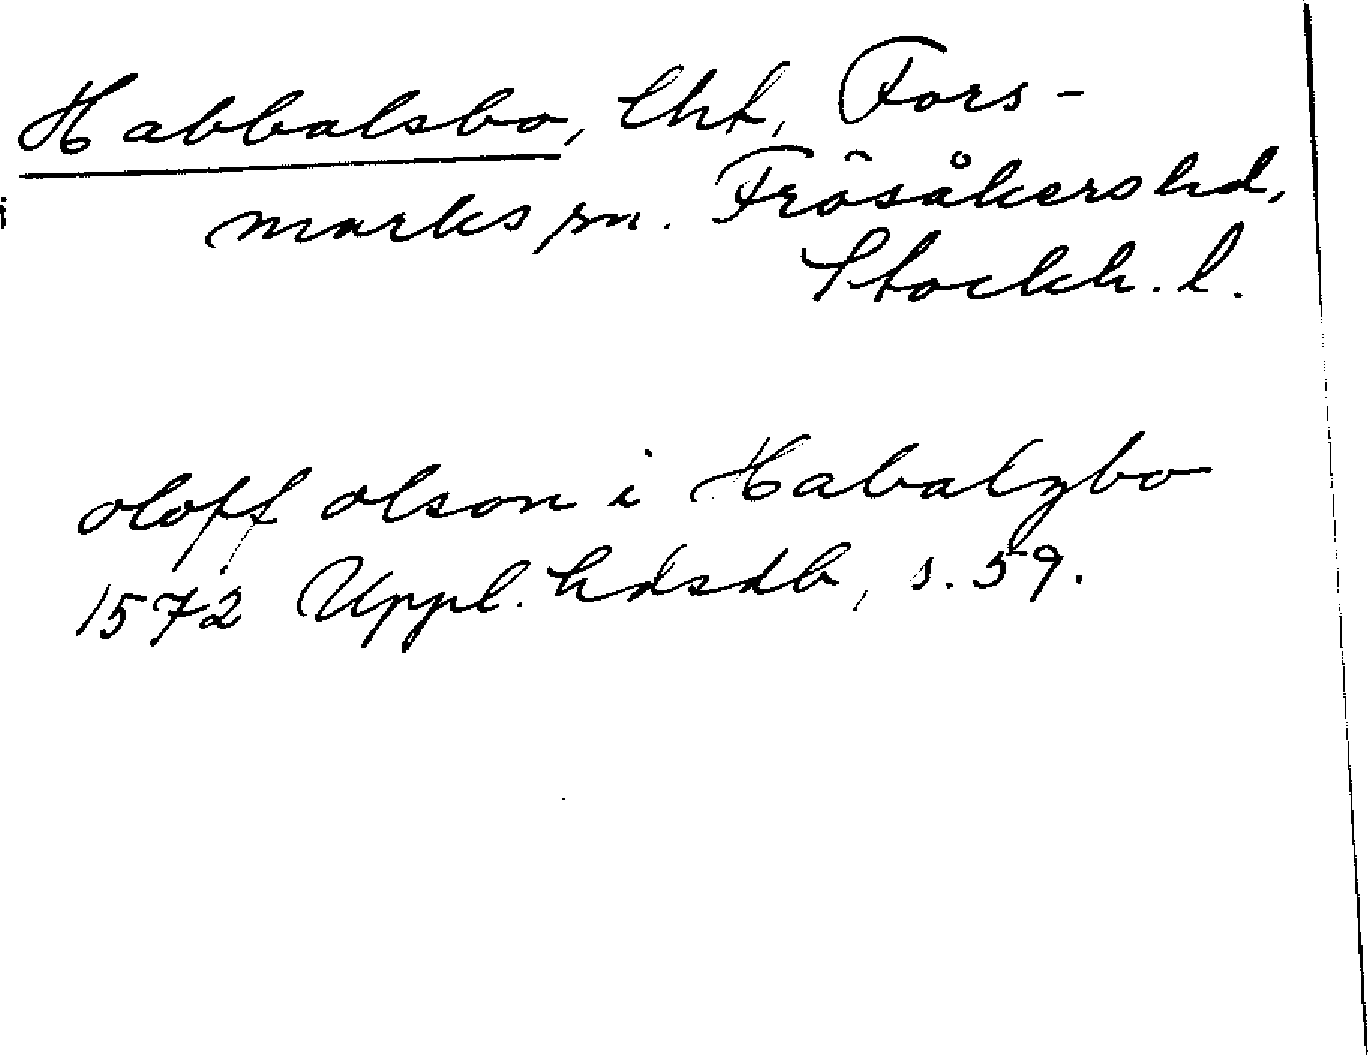 Habbalsbo, lht, Fors-
marks sn. Frösåkers hd,
Stockh. l.
oloff olson i Habalzbo
1572 Uppl. hdsdb, s. 59.